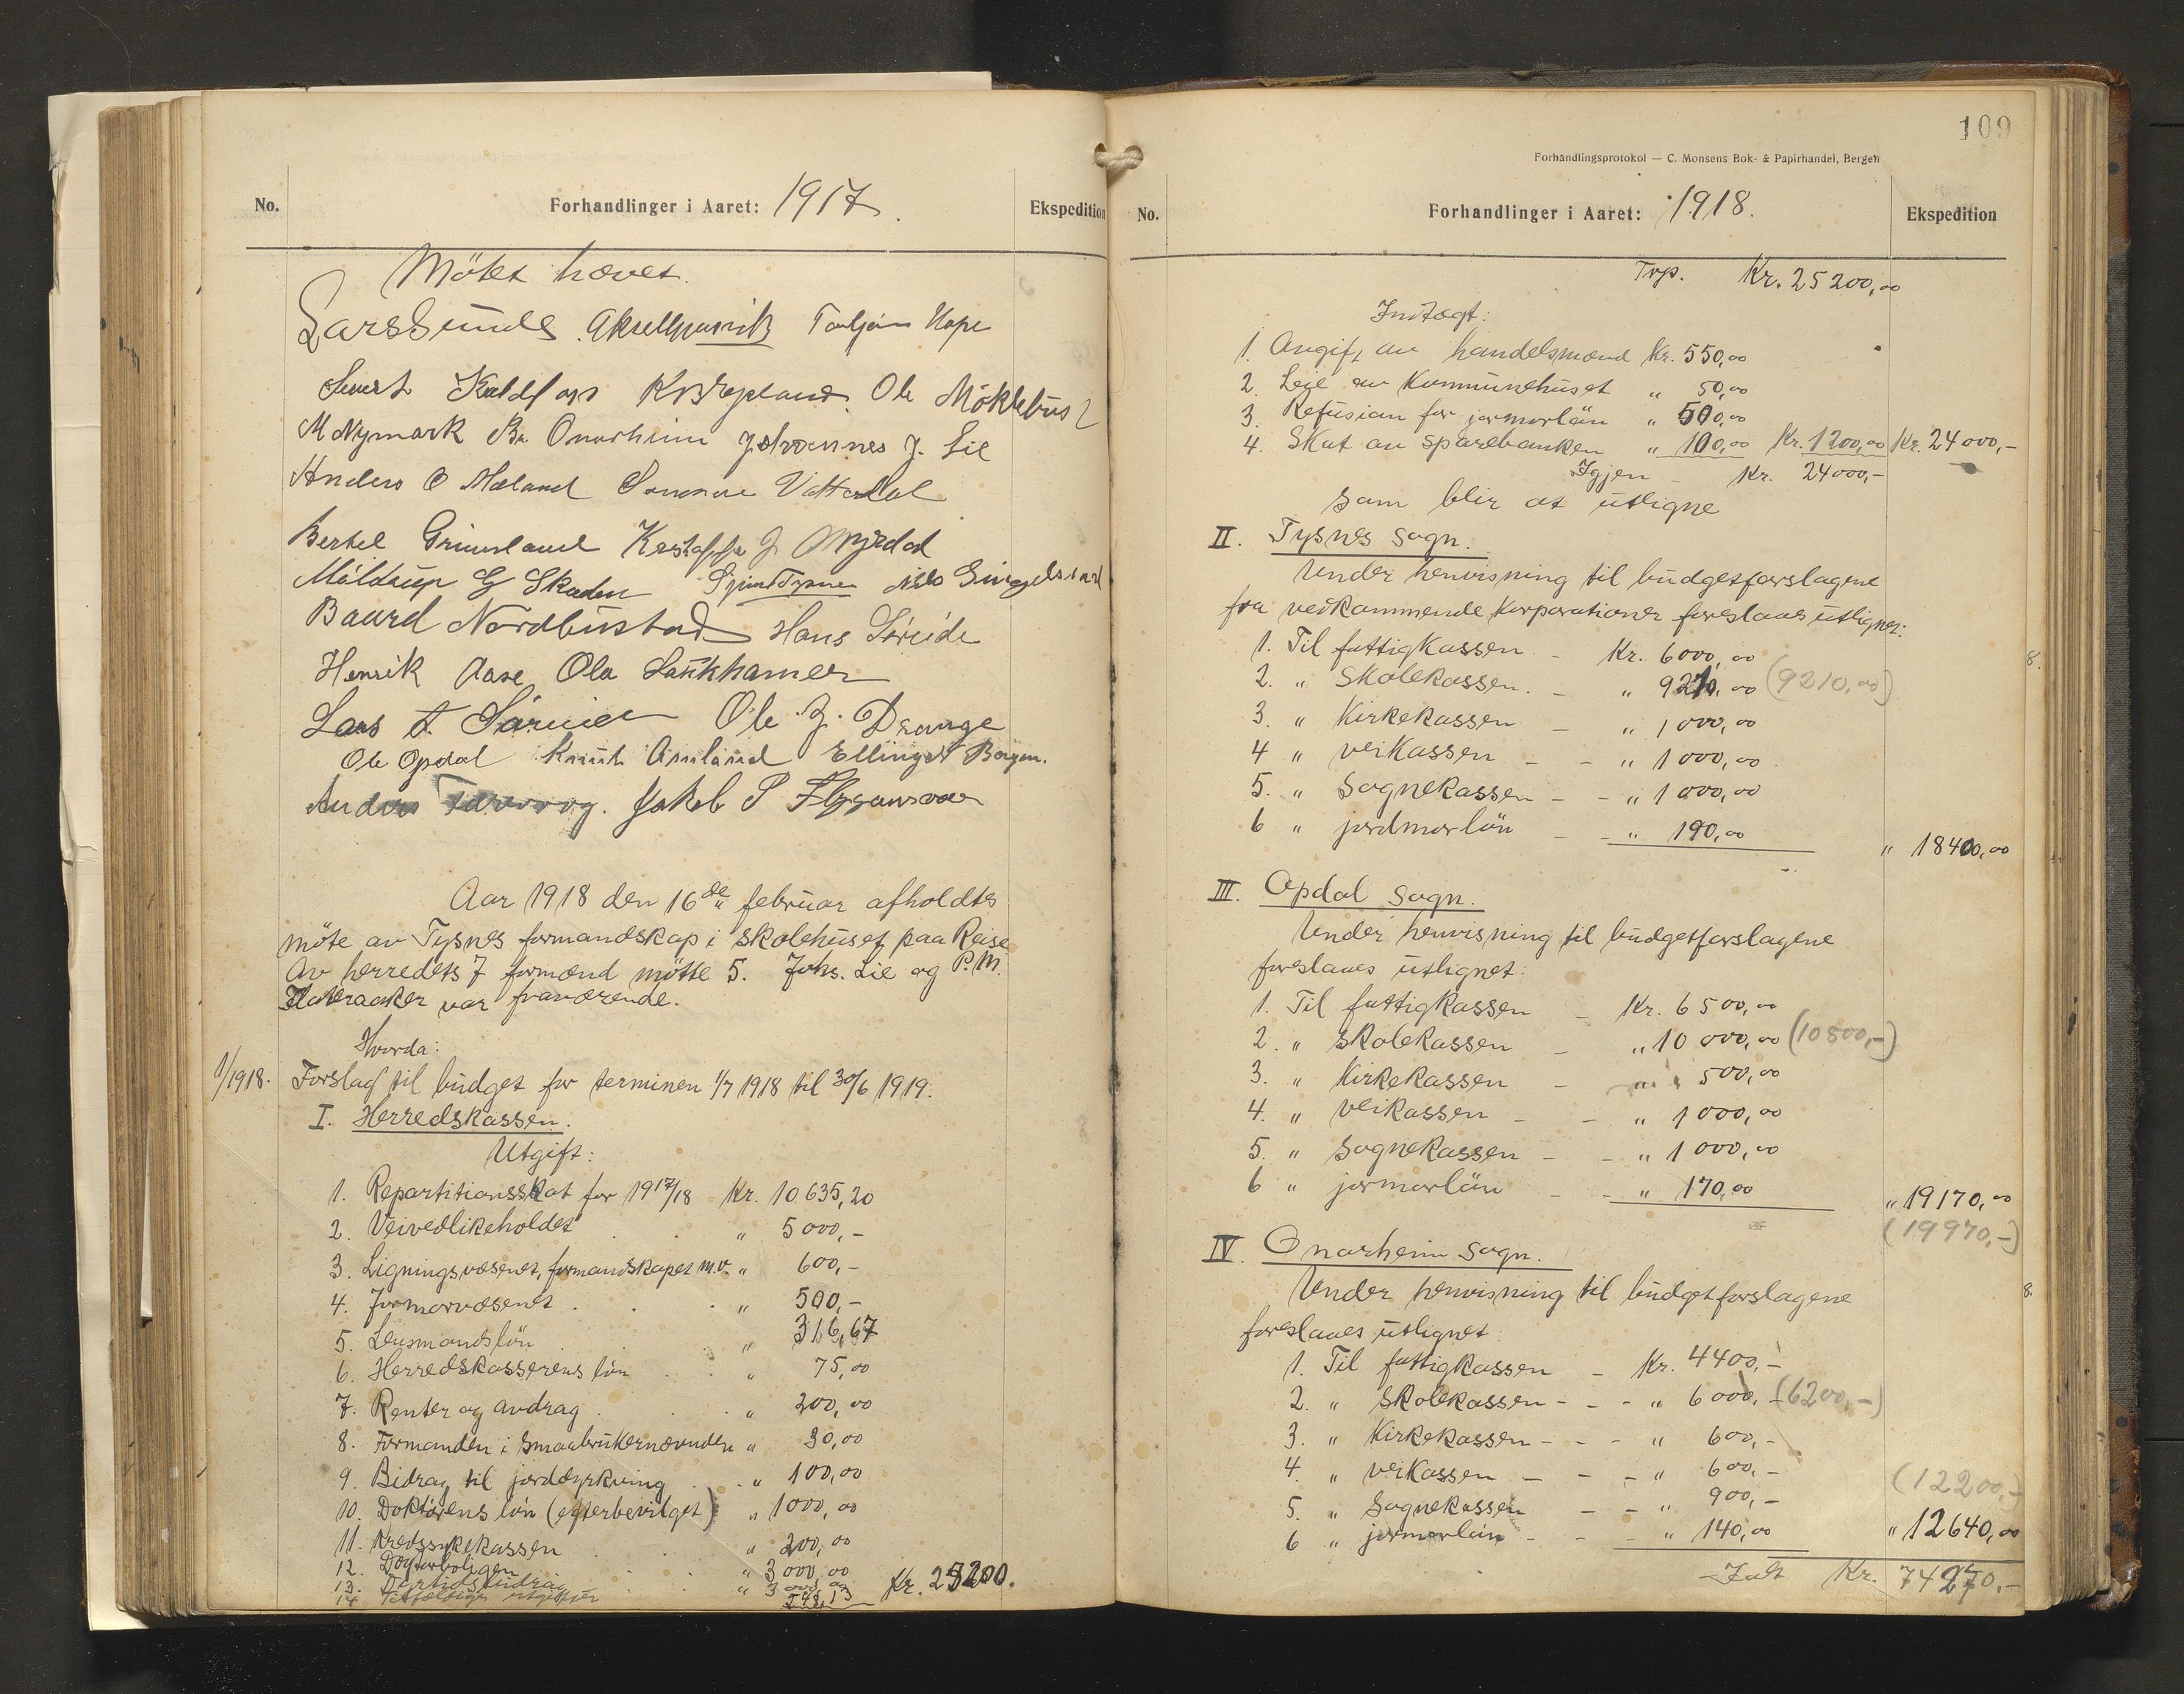 No.
Forhandlinger i Aaret: 1917.
Ekspedition
Møtet hævet.
Lars Sunde. Torbjørn Hope
Sivert Ole Møklebust
M Nymark Br. Onarheim Johannes J. Lie
Anders O Mæland Vatterdal
Bertel Grimsland J. Myrdal
G Skaden Nils
Baard Nordbustad Hans Søreide
Henrik Aase Ola Laukhamer
Lars Ole J. Drange
Ole Opdal Knut Amland Bergen.
Anders Jakob P
Aar 1918 den 16de februar afholdtes
møte av Tysnes formandskap i skolehuset paa Reise
Av herredets 7 formænd møtte 5. Johs. Lie og P. M.
Flateraaker var fraværende.
Hvorda:
1/1918. Forslag til budget for terminen 1/7 1918 til 30/6 1919.
I. Herredskassen.
Utgift:
1. Repartitionsskat for 1917/18 Kr. 10635,20
2. Veivedlikeholdet . . " 5000,-
3. Ligningsvæsenet, formandskapet m.v. " 600,-
4. Jormorvæsenet . . . " 500,-
5. Lensmandsløn . . " 316,67
6. Herredskasserens løn . . " 75,00
7. Renter og avdrag . . . " 200,00
8. Formanden i Smaabrukernævnden " 30,00
9. Bidrag til jorddyrkning . . " 100,00
10. Doktorens løn (efterbevilget) " 1000,00
11. Kredssykekassen . . " 200,00
12. Doktorboligen . . " 3000,00
13. Dyrtidsbidrag . . " 3000,00
14. Tilfældige utgifter 543,13 Kr. 25200.
109
Forhandlingsprotokol — C. Monsens Bok- & Papirhandel, Bergen
No.
Forhandlinger i Aaret: 1918.
Ekspedition
Trp. Kr. 25200,00
Indtægt:
1. Avgift av handelsmænd Kr. 550,00
2. Leie av Kommunehuset " 50,00
3. Refusion for jormorløn " 500,00
4. Skat av sparebanken " 100,00 Kr. 1200,00 Kr. 24000,-
Igjen - Kr. 24000,-
som blir at utligne
II. Tysnes sogn.
Under henvisning til budgetforslagene
fra vedkommende korporationer foreslaaes utlignet:
1. Til fattigkassen - Kr. 6000,00
2. " Skolekassen. - " 9210,00 (9210,00)
3. " Kirkekassen - " 1000,00
4 " veikassen - - " 1000,00
5. " Sognekassen - - " 1000,00
6 " jordmorløn - - " 190,00
" 18400,00
III. Opdal sogn.
Under henvisning til budgetforslagene
foreslaaes utlignet:
1. Til fattigkassen - Kr. 6500,00
2. " skolekassen - " 10000,00 (10800,-)
3. " Kirkekassen - " 500,00
4. " veikassen - - " 1000,00
5. " sognekassen - - " 1000,00
6 " jormorløn - - " 170,00
" 19170,00
(19970,-)
IV. Onarheim sogn.
Under henvisning til budgetforslagene
foreslaaes utlignet:
1. Til fattigkassen - Kr. 4400,-
2. " skolekassen - - - " 6000,- (6200,-)
3. " Kirkekassen - - - " 600,-
4. " veikassen - - - " 600,-
(12200,-)
5. " Sognekassen - - " 900,-
6 " jormorløn - - - " 140,00
" 12640,00
Ialt Kr. 74210,-